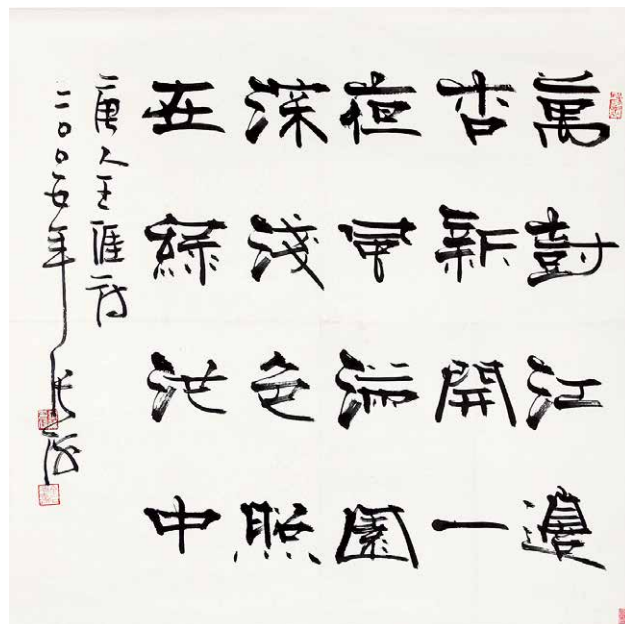 萬樹江邊
杏新開一
夜風滿園
深淺色照
在綠池中
唐人王涯詩
二〇〇五年張海